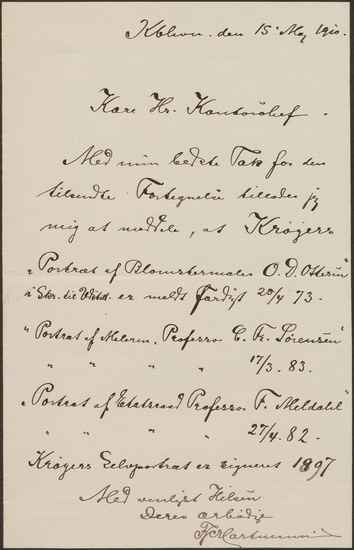 Kbhvn. den 15' Maj 1910.
Kære Hr. Kontorchef.
Med min bedste Tak for den
tilsendte Fortegnelse tillader jeg
mig at meddele, at Krøyers
"Portræt af Blomstermaler O. D. Ottesen"
er meldt færdigt 20/4 73.
"Portræt af Professor C. Fr. Sørensen"
" " " " 17/3. 83.
"Portræt af Etatsraad Professor F. Meldahl"
" " " " 27/4. 82.
Krøyers Selvportræt er signeret 1897
Med venligst Hilsen
Deres ærbødige